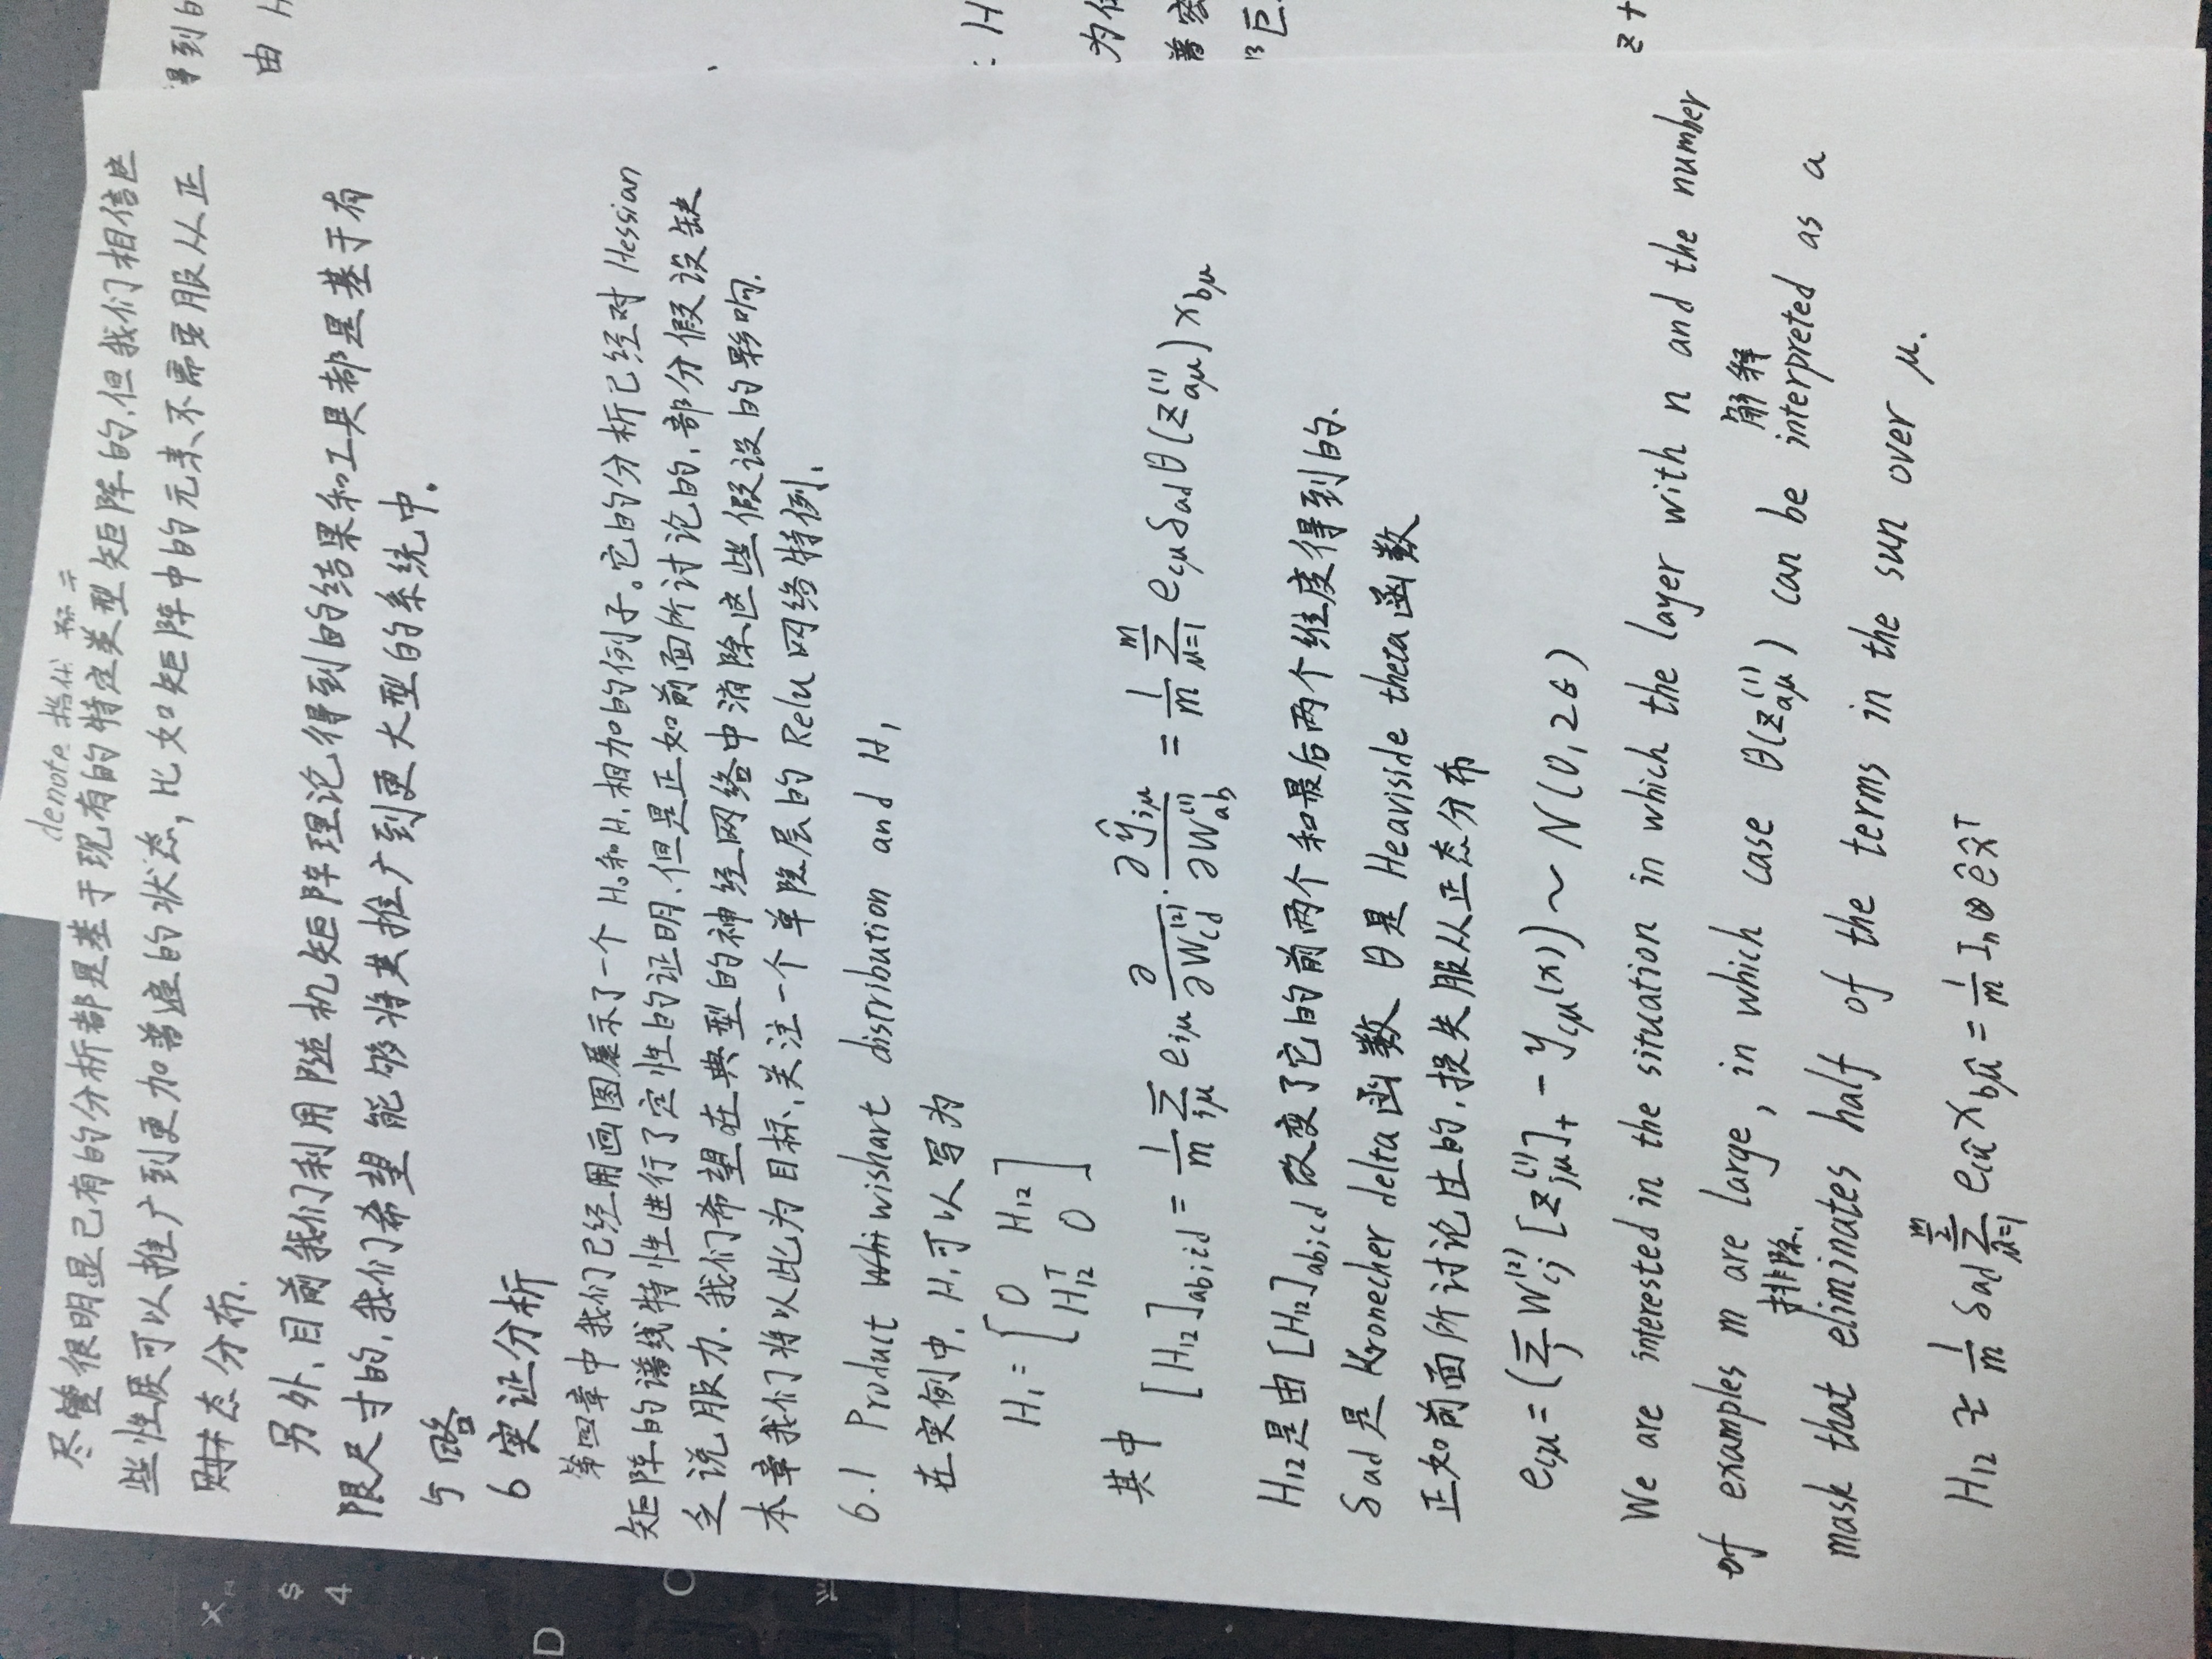 denote 指代 预示
尽管很明显已有的分析都是基于现有的特定类型矩阵的,但我们相信这
些性质可以推广到更加普遍的状态,比如矩阵中的元素不需要服从正
态分布.
另外,目前我们利用随机矩阵理论得到的结果和工具都是基于有
限尺寸的,我们希望能够将其推广到更大型的系统中。
5 略
6 实证分析
第四章中我们已经用画图展示了一个 H₀和H₁相加的例子。它的分析已经对 Hessian
矩阵的谱线特性进行了定性的证明,但是正如前面所讨论的,部分假设缺
乏说服力.我们希望在典型的神经网络中消除这些假设的影响.
本章我们将以此为目标,关注一个单隐层的 Relu 网络特例.
6.1 Product wishart distribution and H₁
在实例中, H₁可以写为
H₁ = [ 0 H₁₂
H₁₂ᵀ 0 ]
其中 [H₁₂]_{ab;cd} = \frac{1}{m} \sum_{iμ} e_{iμ} \frac{∂}{∂W_{cd}^{(2)}} · \frac{∂ŷ_{iμ}}{∂W_{ab}^{(1)}} = \frac{1}{m} \sum_{μ=1}^{m} e_{cμ} δ_{ad} θ(z_{aμ}^{(1)}) x_{bμ}
H₁₂是由 [H₁₂]_{ab;cd} 改变了它的前两个和最后两个维度得到的.
δ_{ad} 是 Kronecher delta 函数 θ是 Heaviside theta 函数
正如前面所讨论过的,损失服从正态分布
e_{cμ} = (\sum_j W_{cj}^{(2)} [z_{jμ}^{(1)}]_+ - y_{cμ}(x)) ~ N(0, 2ϵ)
We are interested in the situation in which the layer with n and the number
of examples m are large, in which case θ(z_{aμ}^{(1)}) can be interpreted as a
解释
排除.
mask that eliminates half of the terms in the sun over μ.
H₁₂ ≈ \frac{1}{m} δ_{ad} \sum_{μ̂=1}^{\frac{m}{2}} e_{cμ̂} x_{bμ̂} = \frac{1}{m} I_n ⊗ ê x̂ᵀ
得到的
由 H
: H
z +
$
4
D